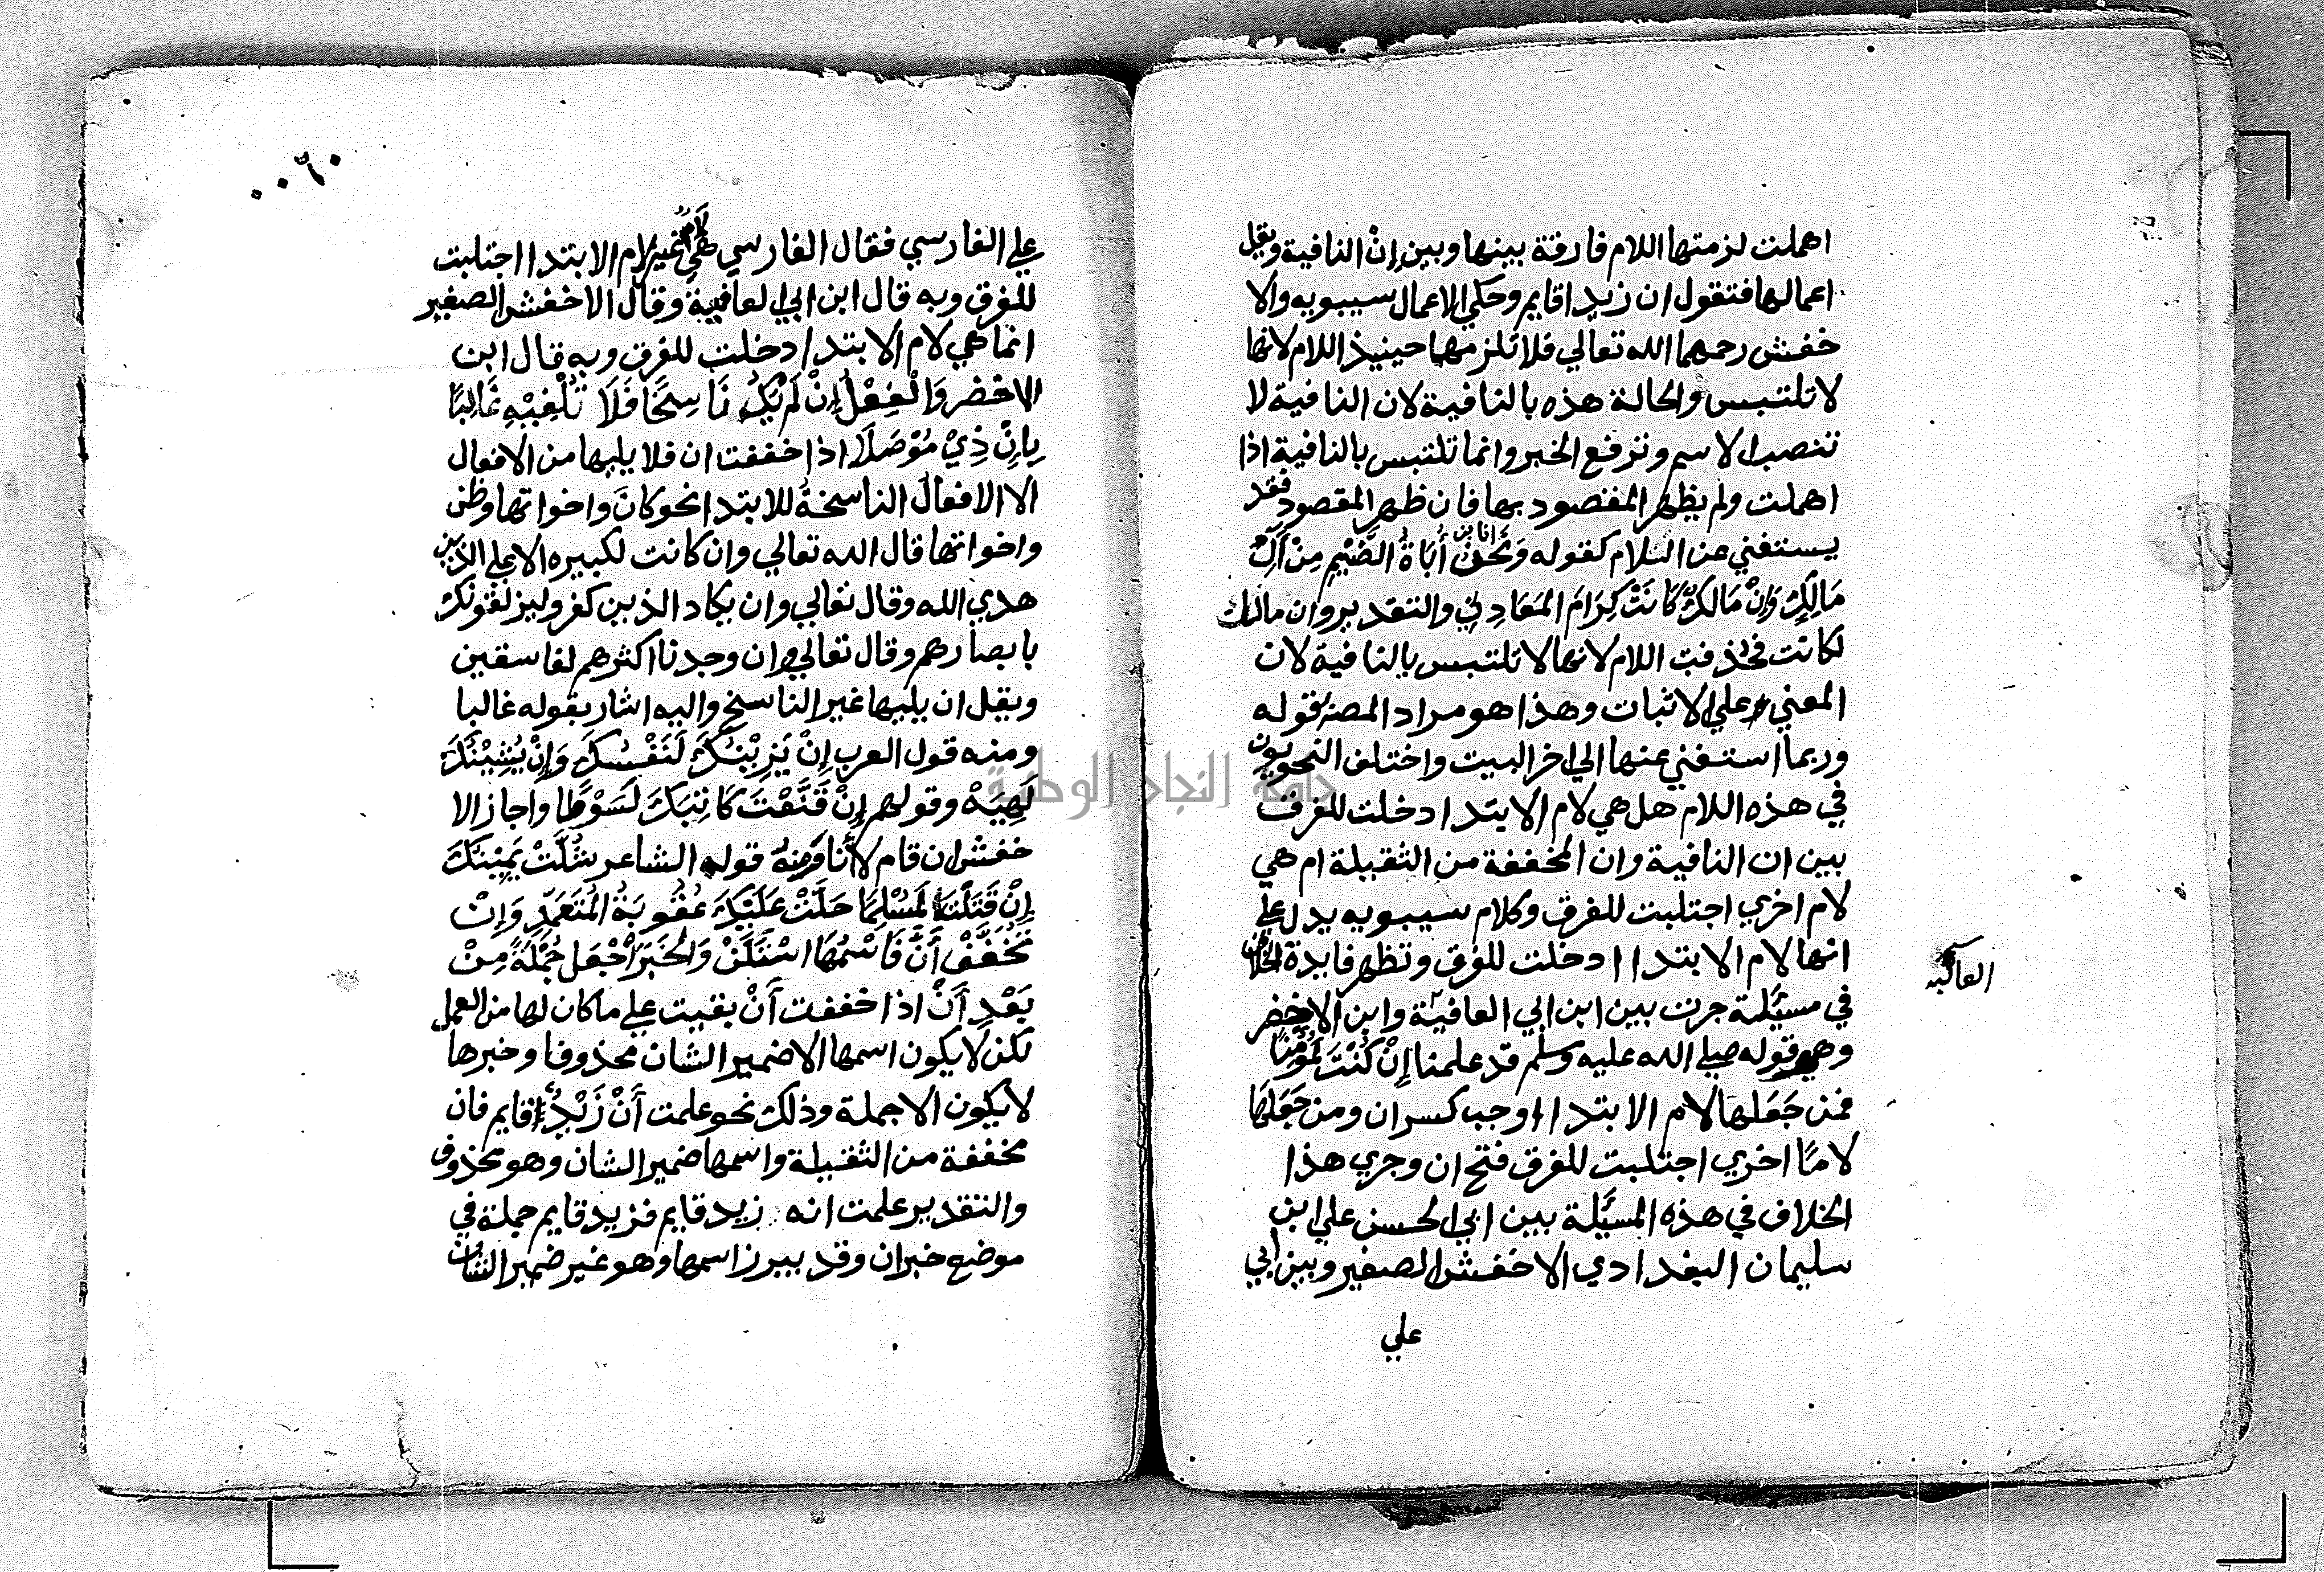 اهملت لزمتها اللام فارقة بينها وبين إنْ النافية ويقل
اعمالها فتقول ان زيدا قايم وحكي الاعمال سيبويه والا
خفش رحمهما الله تعالي فلا تلزمها حينيذ اللام لانها
لا تلتبس والحالة هذه بالنافية لان النافية لا
تنصب الاسم وترفع الخبر وانما تلتبس بالنافية اذا
اهملت ولم يظهر المقصود بها فان ظهر المقصود فقد
يستغني عن اللام كقوله وَنَحْنُ أُبَاةُ الضَّيْمِ مِنْ آلِ
مَالِكٍ وَإِنْ مَالِكٌ كَانَتْ كِرَامَ المَعَادِنِ والتقدير وان مالك
لكانت فحذفت اللام لانها لا تلتبس بالنافية لان
المعني علي الاثبات وهذا هو مراد المصنف بقوله
وربما استغني عنها الي اخر البيت واختلف النحويون
في هذه اللام هل هي لام الابتدا دخلت للفرق
بين ان النافية وان المخففة من الثقيلة ام هي
لام اخري اجتلبت للفرق وكلام سيبويه يدل علي
انها لام الابتدا دخلت للفرق وتظهر فايدة الخلاف
في مسئلة جرت بين ابن ابي العافية وابن الاخضر
وهي قوله صلي الله عليه وسلم قد علمنا إنْ كُنْتَ لَمُؤْمِنًا
فمن جَعَلها لام الابتدا اوجب كسر ان ومن جَعَلَهَا
لامًا اخري اجتلبت للفرق فتح ان وجري هذا
الخلاف في هذه المسئلة بين ابي الحسن علي ابن
سليمان البغدادي الاخفش الصغير وبين ابي
علي
٠٠٦٠
علي الفارسي فقال الفارسي هي لامٌ غير لام الابتدا اجتلبت
للفرق وبه قال ابن ابي العافية وقال الاخفش الصغير
انما هي لام الابتدا دخلت للفرق وبه قال ابن
الاخضر وَالْفِعْلُ إِنْ لَمْ يَكُ نَاسِخًا فَلَا تُلْفِيْهِ غَالِبًا
بِإِنْ ذِيْ مُوْصَلَا اذا خففت ان فلا يليها من الافعال
الا الافعال الناسخة للابتدا نحو كانَ واخواتها وظن
واخواتها قال الله تعالي وان كانت لكبيره الا علي الذين
هدي الله وقال تعالي وان يكاد الذين كفرو ليزلقونك
بابصارهم وقال تعالي وان وجدنا اكثرهم لفاسقين
ويقل ان يليها غير الناسخ واليه اشار بقوله غالبا
ومنه قول العرب إِنْ يَزِيْنُكَ لَنَفْسُكَ وَإِنْ يُشِيْنُكَ
لَهِيَهْ وقولهم إِنْ قَنَّعْتَ كَاتِبَكَ لَسَوْطًا واجاز الا
خفش ان قام لأنا ومنه قوله الشاعر شُلَّتْ يَمِيْنُكَ
إِنْ قَتَلْتَ لَمُسْلِمًا حَلَّتْ عَلَيْكَ عُقُوبَةُ المُتَعَمِّدِ وَإِنْ
تُخَفَّفْ أَنَّ فَاسْمُهَا اسْتَكَنْ وَالْخَبَرَ اجْعَل جُمْلَةً مِنْ
بَعْدِ أَنْ اذا خففت أَنْ بقيت علي ما كان لها من العمل
لكن لا يكون اسمها الا ضمير الشان محذوفا وخبرها
لا يكون الا جملة وذلك نحو علمت أَنْ زَيْدٌ قايم فان
مخففة من الثقيلة واسمها ضمير الشان وهو محذوف
والتقدير علمت انه زيد قايم فزيد قايم جملة في
موضع خبر ان وقد يبرز اسمها وهو غير ضمير الشان
جامعة النجاح الوطنية